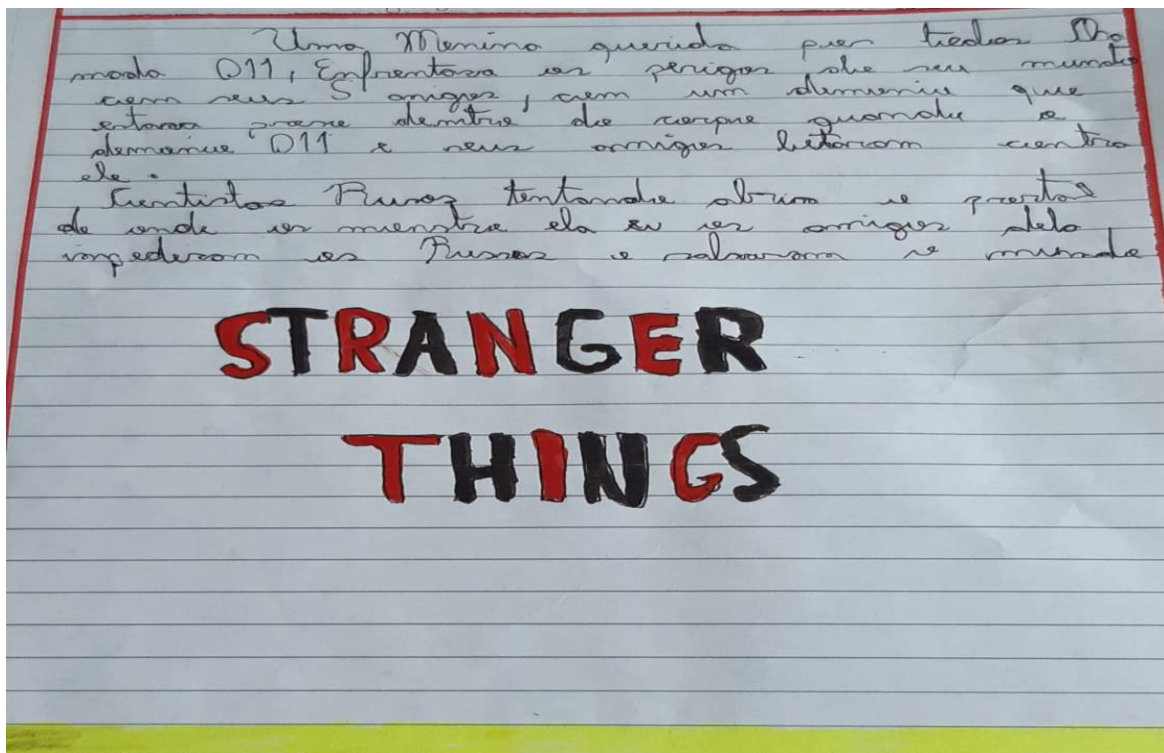 Uma Menina querida por todos Cha
mada O11, Enfrentava os perigos de seu mundo
com seus 5 amigos, com um demonio que
estava preso dentro do corpo quando o
demonio O11 e seus amigos lutaram contra
ele.
Cientistas Rusos tentando abrir o portal
de onde os monstro ela os amigos dela
impediram os Russos e salvaram o mundo
STRANGER
THINGS